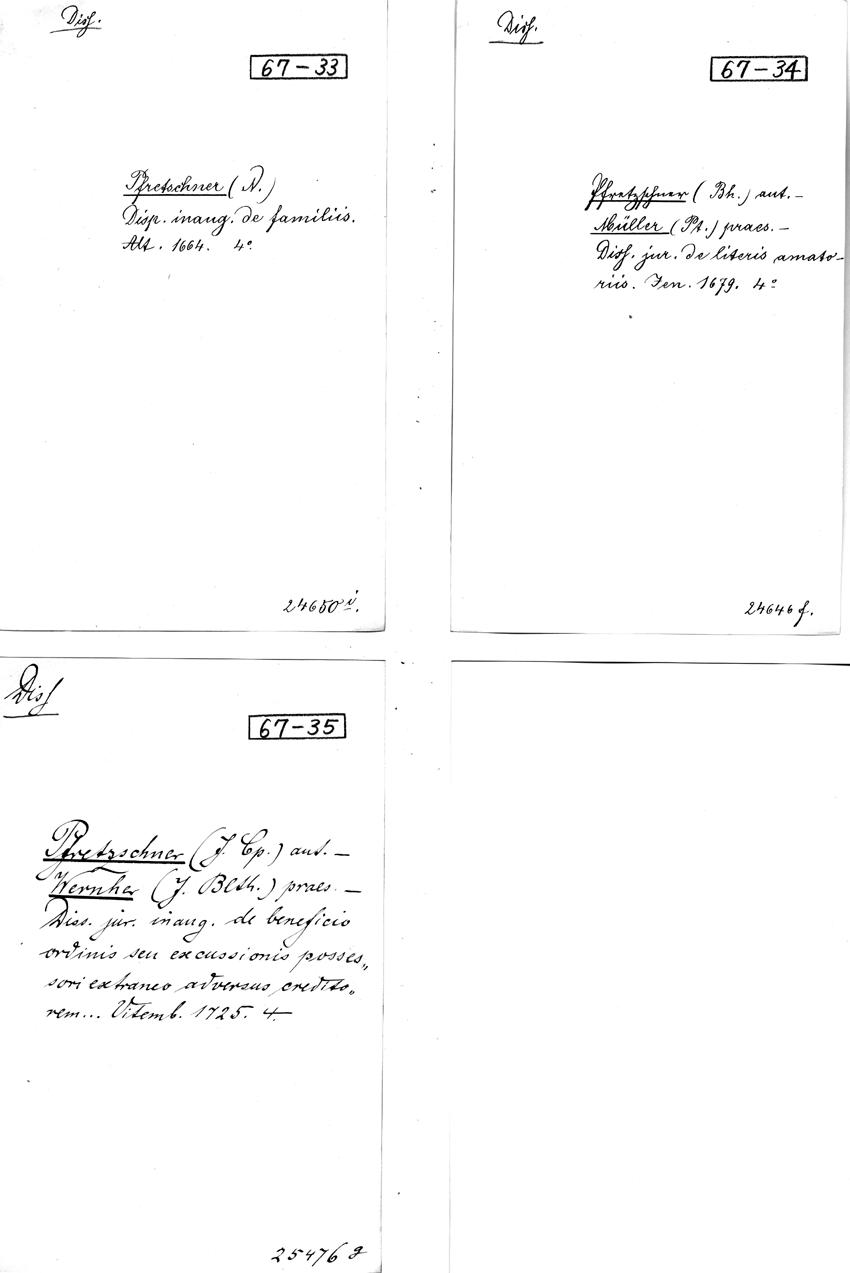 Diss.
67-33
Pfretschner (N.)
Disp. inaug. de familiis.
Alt. 1664. 4º
24650 i.
Diss.
67-34
Pfretzschner (Bh.) aut. –
Müller (Pt.) praes. –
Diss. jur. de literis amato-
riis. Jen. 1679. 4º
24646 f.
Diss
67-35
Pfretzschner (J. Cp.) aut. –
Wernher (J. Blth.) praes. –
Diss. jur. inaug. de beneficio
ordinis seu excussionis posses„
sori extraneo adversus credito„
rem... Vitemb. 1725. 4.
25476 g